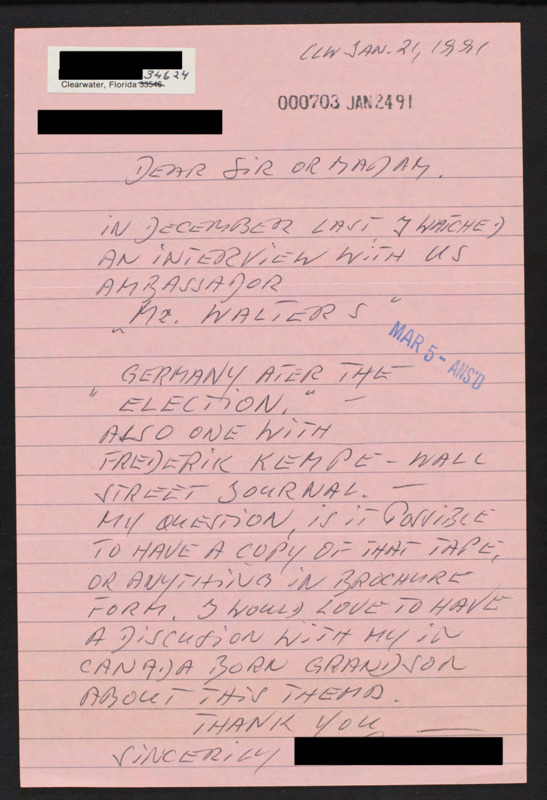 34624
Clearwater, Florida 33546
CLW JAN. 21, 1991
000703 JAN2491
DEAR SIR OR MADAM.
IN DECEMBER LAST I WATCHED
AN INTERVIEW WITH US
AMBASSADOR
"MR. WALTERS"
MAR 5 - ANS'D
"GERMANY ATER THE
ELECTION." —
ALSO ONE WITH
FREDERIK KEMPE - WALL
STREET JOURNAL. —
MY QUESTION, IS IT POSSIBLE
TO HAVE A COPY OF THAT TAPE,
OR ANYTHING IN BROCHURE
FORM. I WOULD LOVE TO HAVE
A DISCUSION WITH MY IN
CANADA BORN GRANDSON
ABOUT THIS THEMA.
THANK YOU —
SINCERILY